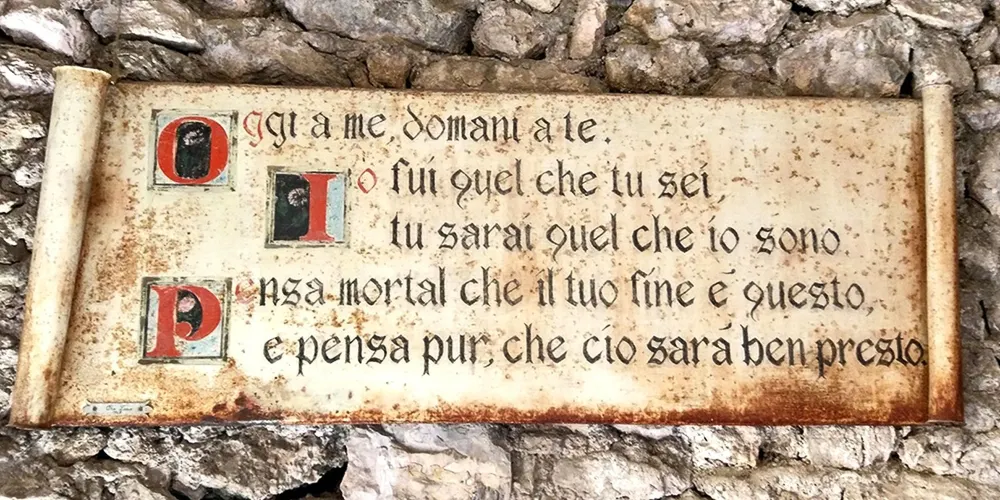 Oggi a me, domani a te.
Io fui quel che tu sei,
tu sarai quel che io sono
Pensa mortal che il tuo fine é questo,
e pensa pur, che cio sará ben presto.